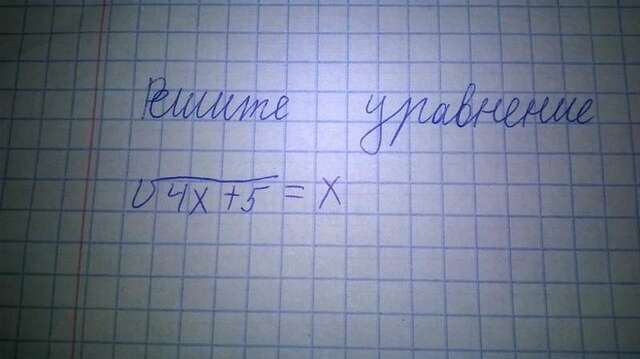 Решите уравнение
√4x+5 = x